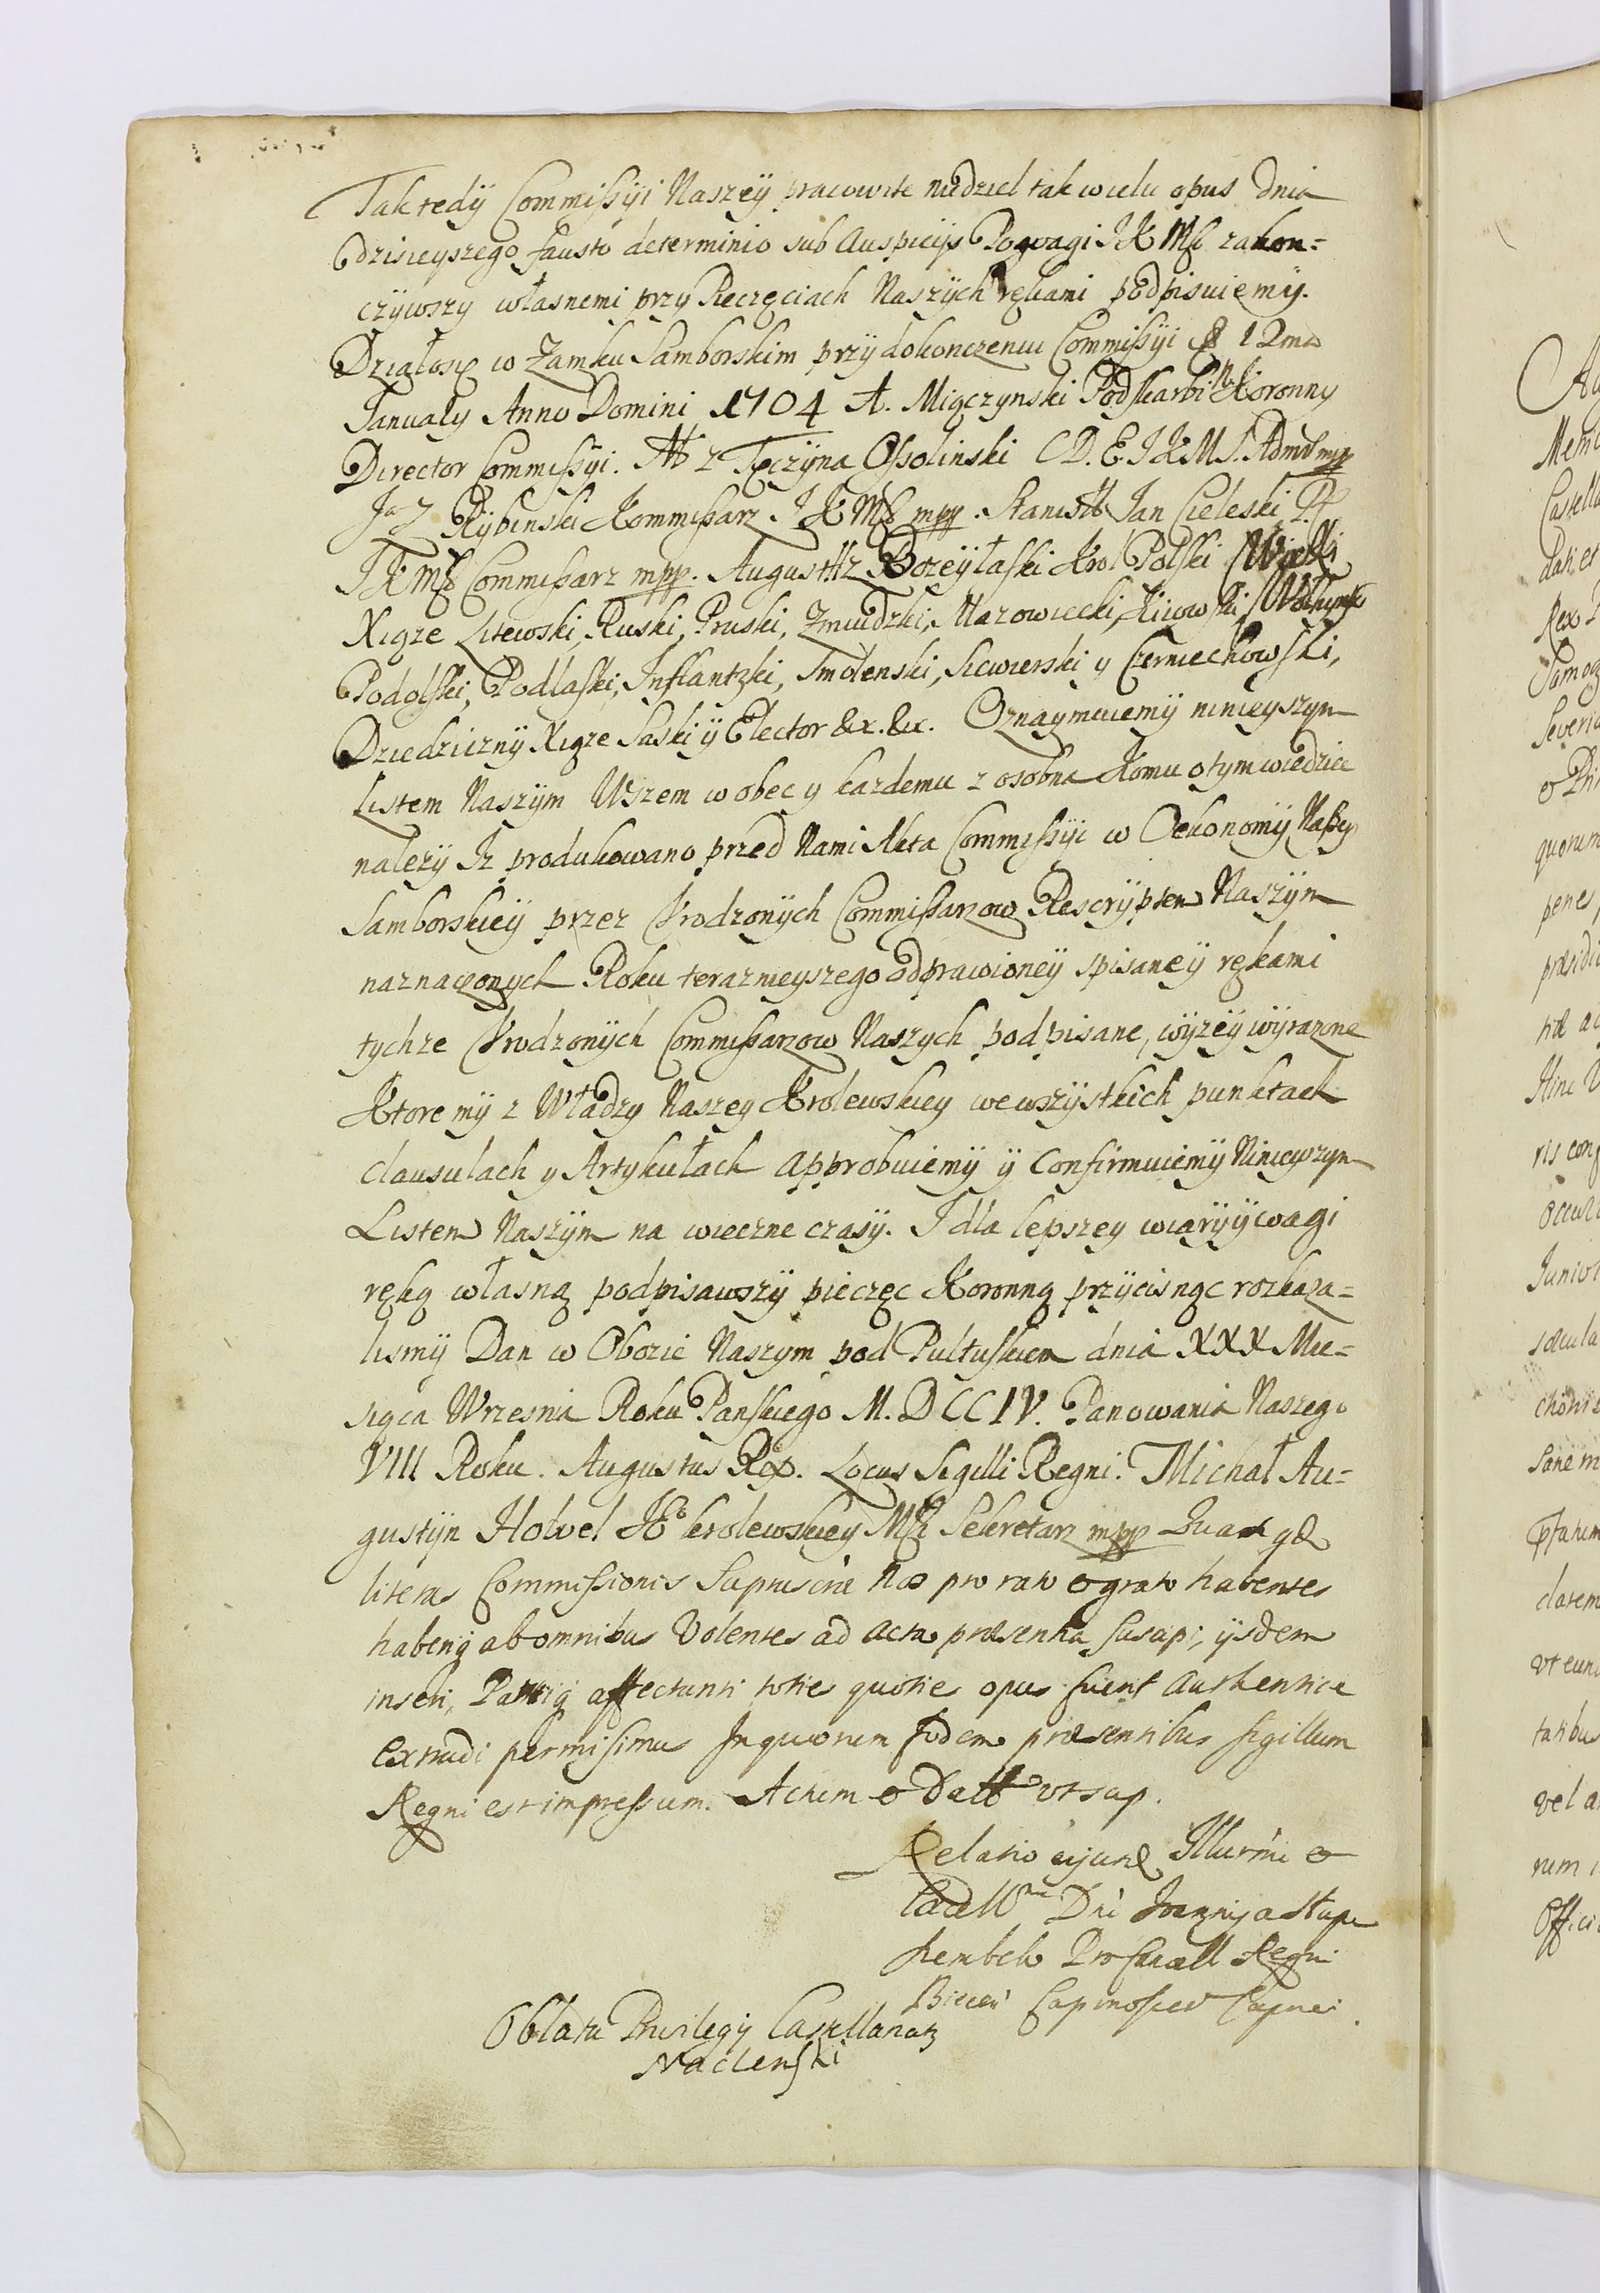 Tak tedÿ Commissÿi Naszeÿ pracowite niedziel tak wielu opus dnia
dzisieyszego fausto determinio sub Auspicijs Powagi J K Mſci zakon=
czÿwszy własnemi przy Pieczęciach Naszÿch rękami podpisuiemÿ.
Działosię w Zamku Samborskim przÿ dokonczeniu Commissÿi 12ma
Januaÿ Anno Domini 1704 A. Miączynski Podskarbi N. Koronny
Director Commissÿi. M z Tęczÿna Ossolinski C D. E. J K M S. Adm mpp
Ja Z Rÿbinski Kommissarz J K Mſci mpp. Stanisła Jan Cieleski
J K Mſci Commissarz mpp. August II z Bożeÿ łaski Krol Polski Wielki
Xiąze Litewski, Ruski, Pruski, Zmudzki, Mazowiecki, Kiiowski, Wołynski
Podolski, Podlaski, Inflantzki, Smolenski, Siewierski y Czerniechowski,
Dziedzicznÿ Xiąze Saski ÿ Elector &c. &c. Oznaymuiemÿ ninieyszym
listem Naszÿm Wszem wobec y kazdemu z osobna Komu otym wiedziec
nalezÿ Iz produkowano przed Nami Akta Commissÿi w Oekonomÿ Naszey
Samborskieÿ przez Urodzonÿch Commissarzow Rescrÿptem Naszÿm
naznaczonych Roku terazniejszego odprawioneÿ spisaneÿ rękami
tychze Urodzonÿch Commissarzow Naszych podpisane, wÿzeÿ wÿrazone
Ktore mÿ z Władzy Naszey Krolewskiey we wszÿstkich punktach
clausulach y Artykułach approbuiemÿ ÿ confirmuiemÿ Ninieyszym
Listem Naszÿm na wieczne czasÿ. I dla lepszey wiarÿ ÿ wagi
ręką własną podpisawszÿ pieczęc Koronną przÿcisnąc rozkaza=
lismÿ Dan w Obozie Naszym pod Pultuskiem dnia XXX Mie=
siąca Wrzesnia Roku Panskiego M. DCCIV. Panowania Naszego
VIII Roku. Augustus Rex. Locus Sigilli Regni. Michał Au=
gustÿn Holvel Krolewskiey Mſci Sekretarz mpp Quas
literas Commissionis Nos pro rato & grato habentes
ab omnibus Volentes ad acta præsentia suscipi, ijsdem
inseri, affectanti toties quoties opus fuerit authentice
extradi permisimus In quorum fidem præsentibus sigillum
Regni est impressum. Actum & Datt ut sup.
Relatio Illurmi &
Dni Joannis a Słupe
Szembek Procancell Regni
Biecen
Oblata Privilegÿ Castellanatus
Naclenski